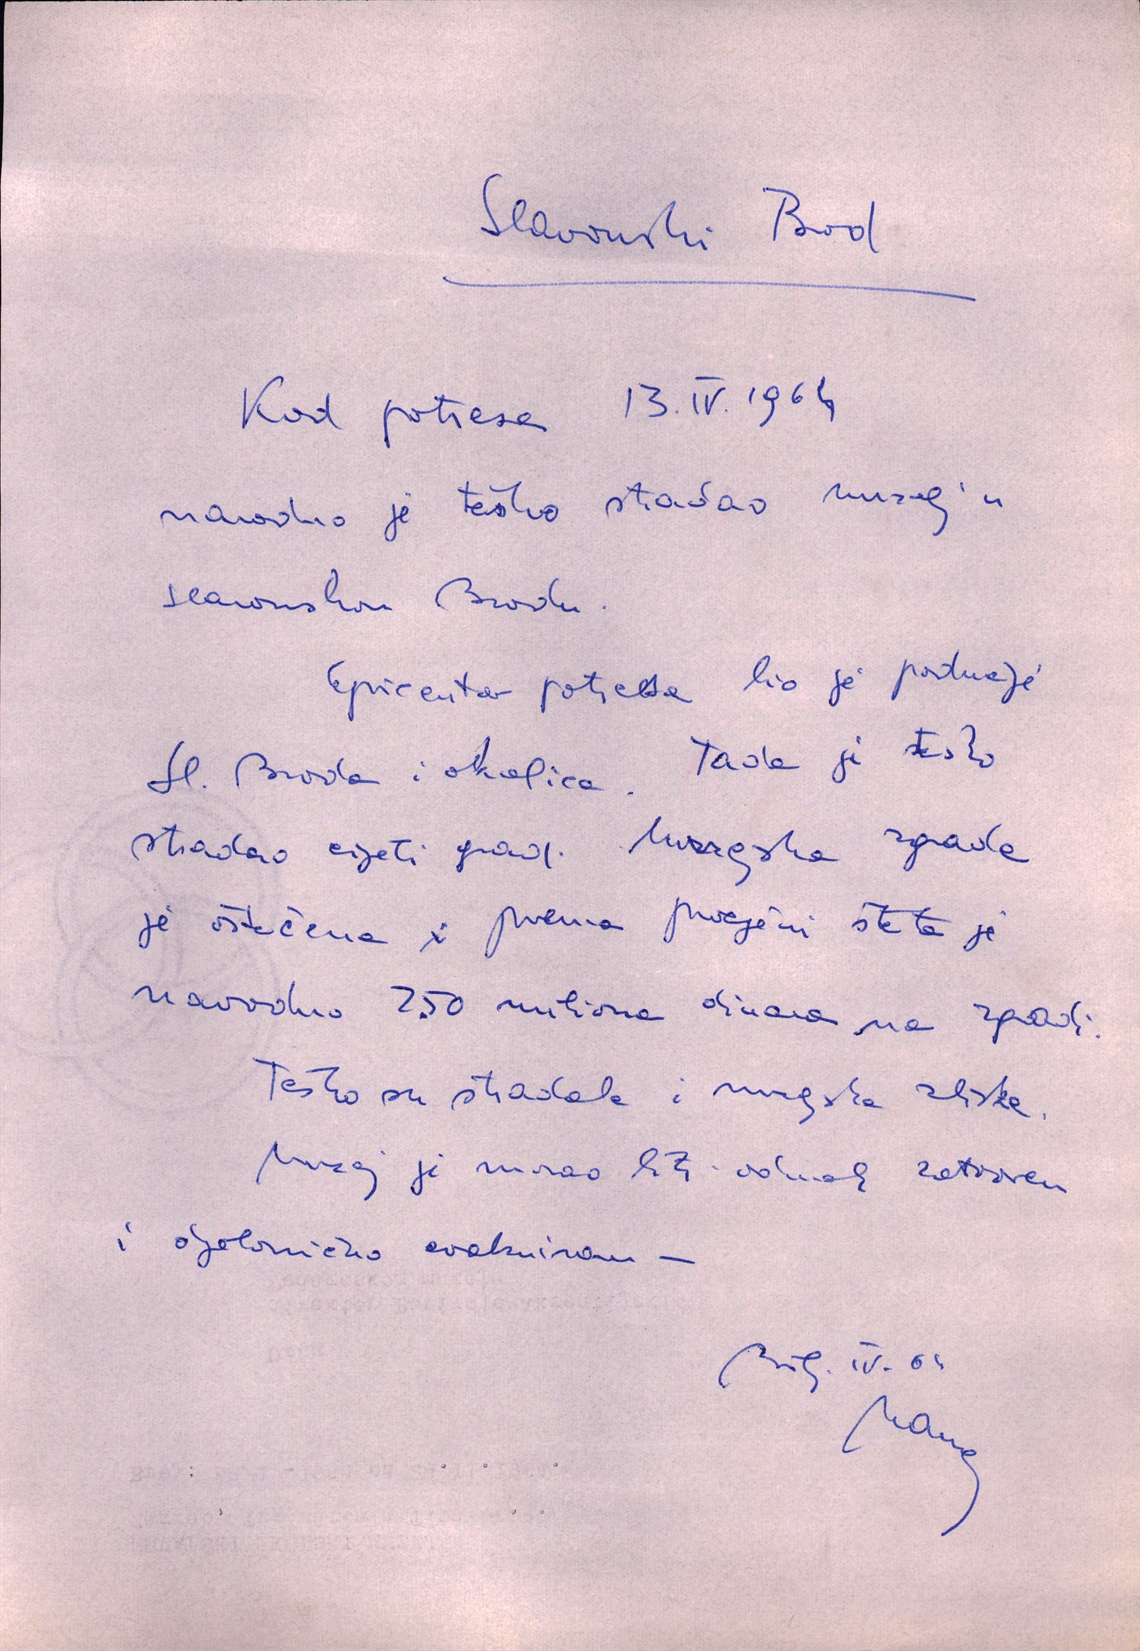 Slavonski Brod
Kod potresa 13. IV. 1964
navodno je teško stradao muzej u
slavonskom Brodu.
Epicentar potresa bio je područje
Sl. Broda i okolica. Tada je teško
stradao cijeli grad. Muzejska zgrada
je oštećena i prema procjeni šteta je
navodno 250 miliona dinara na zgradi.
Teško su stradale i muzejske zbirke.
Muzej je morao biti odmah zatvoren
i djelomično evakuiran —
IV. 64